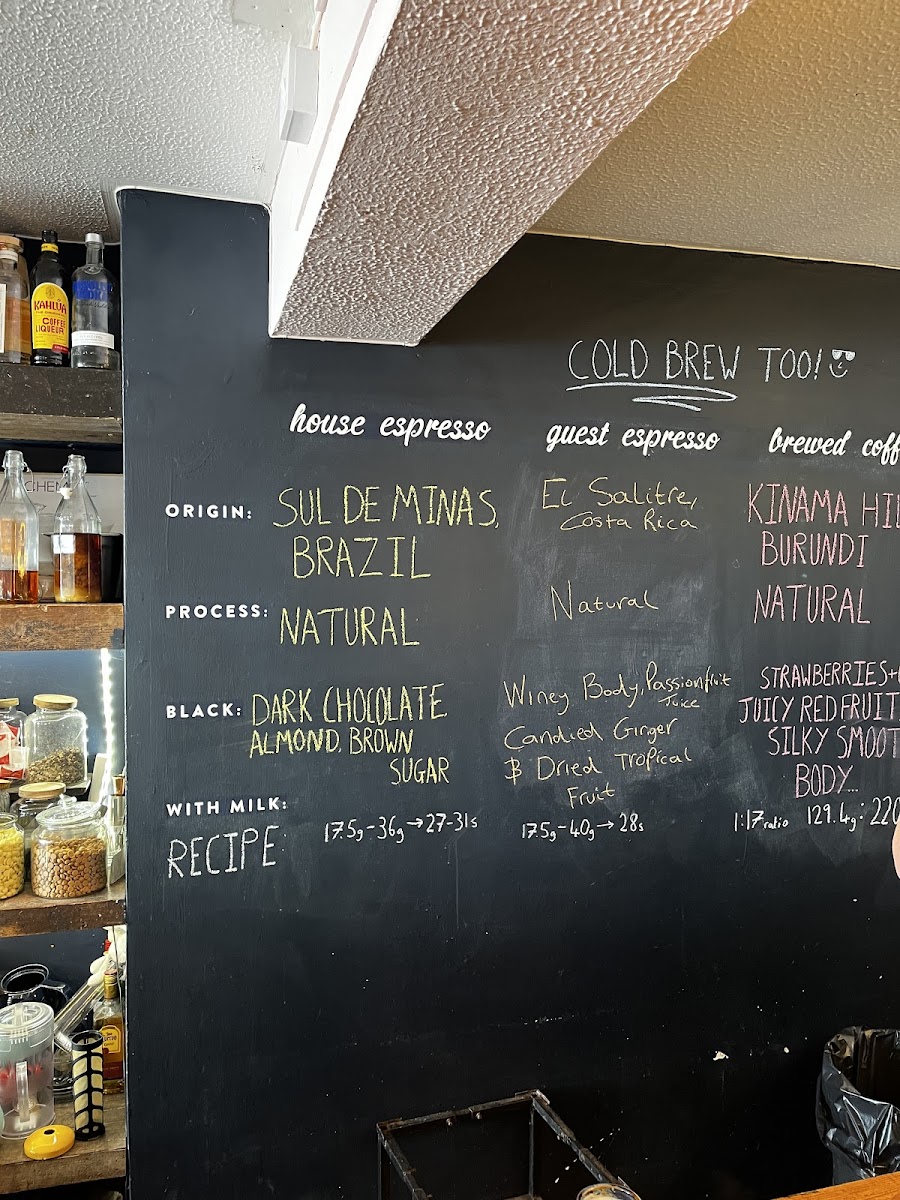 COLD BREW TOO!
house espresso
guest espresso
brewed coff
ORIGIN:
SUL DE MINAS,
BRAZIL
El Salitre,
Costa Rica
KINAMA HIL
BURUNDI
PROCESS:
NATURAL
Natural
NATURAL
BLACK:
DARK CHOCOLATE
ALMOND, BROWN
SUGAR
Winey Body, Passionfruit
Juice
Candied Ginger
& Dried Tropical
Fruit
STRAWBERRIES+
JUICY RED FRUIT
SILKY SMOOT
BODY...
WITH MILK:
RECIPE:
17.5g-36g→27-31s
17.5g-40g→28s
1:17 ratio 129.4g: 220
KAHLÚA
COFFEE
LIQUEUR
CHEM